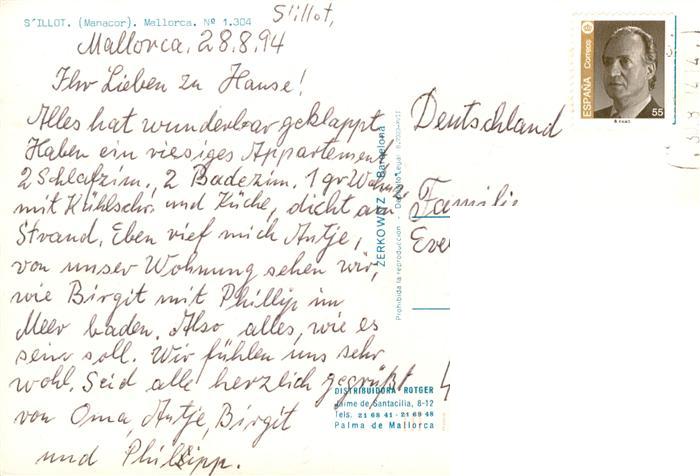 S'illot,
S'ILLOT. (Manacor). Mallorca. Nº 1.304
Mallorca, 28.8.94
Ihr Lieben zu Hause!
Alles hat wunderbar geklappt
Haben ein riesiges Appartement
2 Schlafzim., 2 Badezim. 1 gr. Wohnz.
mit Kühlschr. und Küche, dicht am
Strand. Eben rief mich Antje,
von unser Wohnung sehen wir,
wie Birgit mit Phillip im
Meer baden. Also alles, wie es
sein soll. Wir fühlen uns sehr
wohl. Seid alle herzlich gegrüßt
von Oma, Antje, Birgit
und Phillipp.
ZERKOWITZ - Barcelona
Prohibida la reproducción - Depósito Legal
DISTRIBUIDORA ROTGER
Jaime de Santacilia, 8-12
Tels. 21 68 41 - 21 69 48
Palma de Mallorca
Deutschland
Familie
ESPAÑA
Correos
55